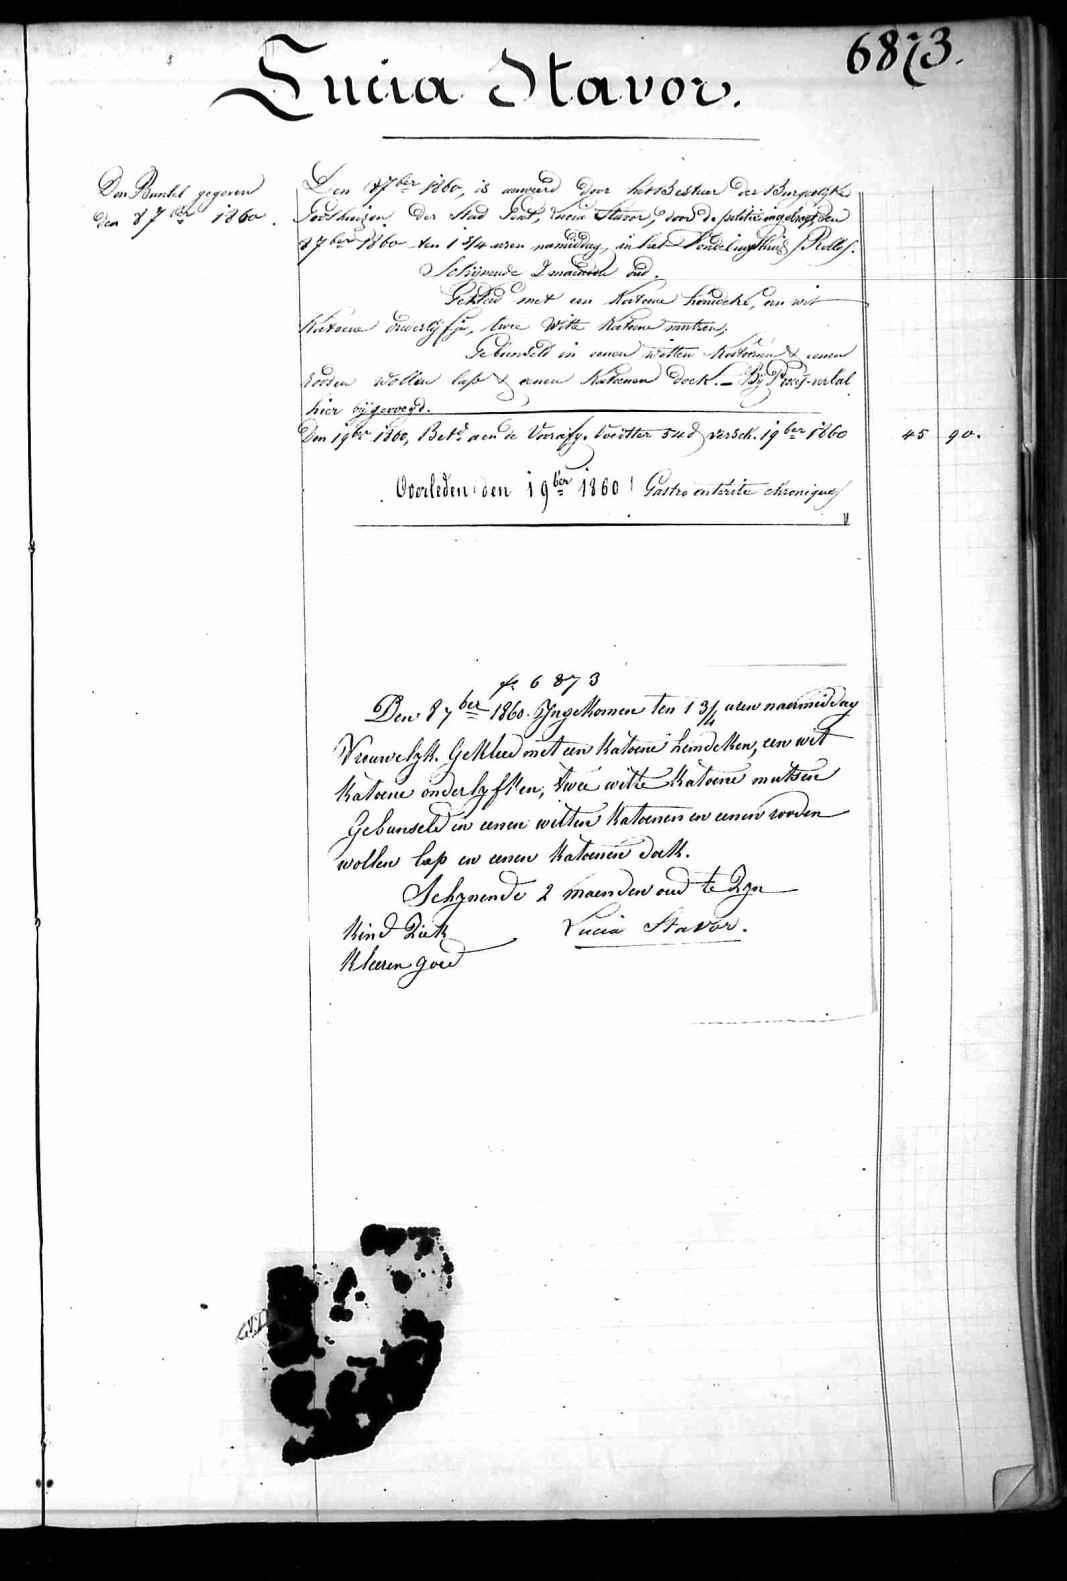 6873.
Lucia Stavor.
Den Buntel gegeven
den 8 7ber 1860.
Den 8 7ber 1860, is aenveerd door het Bestuer der Burgerlijke
Godshuizen der Stad Gent, Lucia Stavor, door de politie ingebragt, den
8 7ber 1860 ten 1 3/4 uren namiddag, in het Vondelingshuis
Schijnende 2 maenden oud.
Gekleed met een Katoene hemdeke, een wit
Katoene onderlijfje, twee Witte Katoene mutsen,
Gebunseld in eenen witten Katoenen & eenen
rooden wollen lap & eenen Katoenen Doek. — Bij Proces-verbal
hier bijgevoegd.
Den 19ber 1860, Bet. aen de Voorafg. Voedster 54d versch. 19ber 1860 45 90.
Overleden den 1 9ber 1860 Gastro entérite chronique
6873
Den 8 7ber 1860. Ingekomen ten 1 3/4 uren naermiddag
Vrouwelyk. Gekleed met een Katoene hemdeken, een wit
Katoene onderlyfken, twee witte Katoene mutsen
Gebunseld in eenen witten Katoenen en eenen rooden
wollen lap en eenen Katoenen doek.
Schynende 2 maenden oud te Zyn
Kind Ziek Lucia Stavor.
Kleeren goed